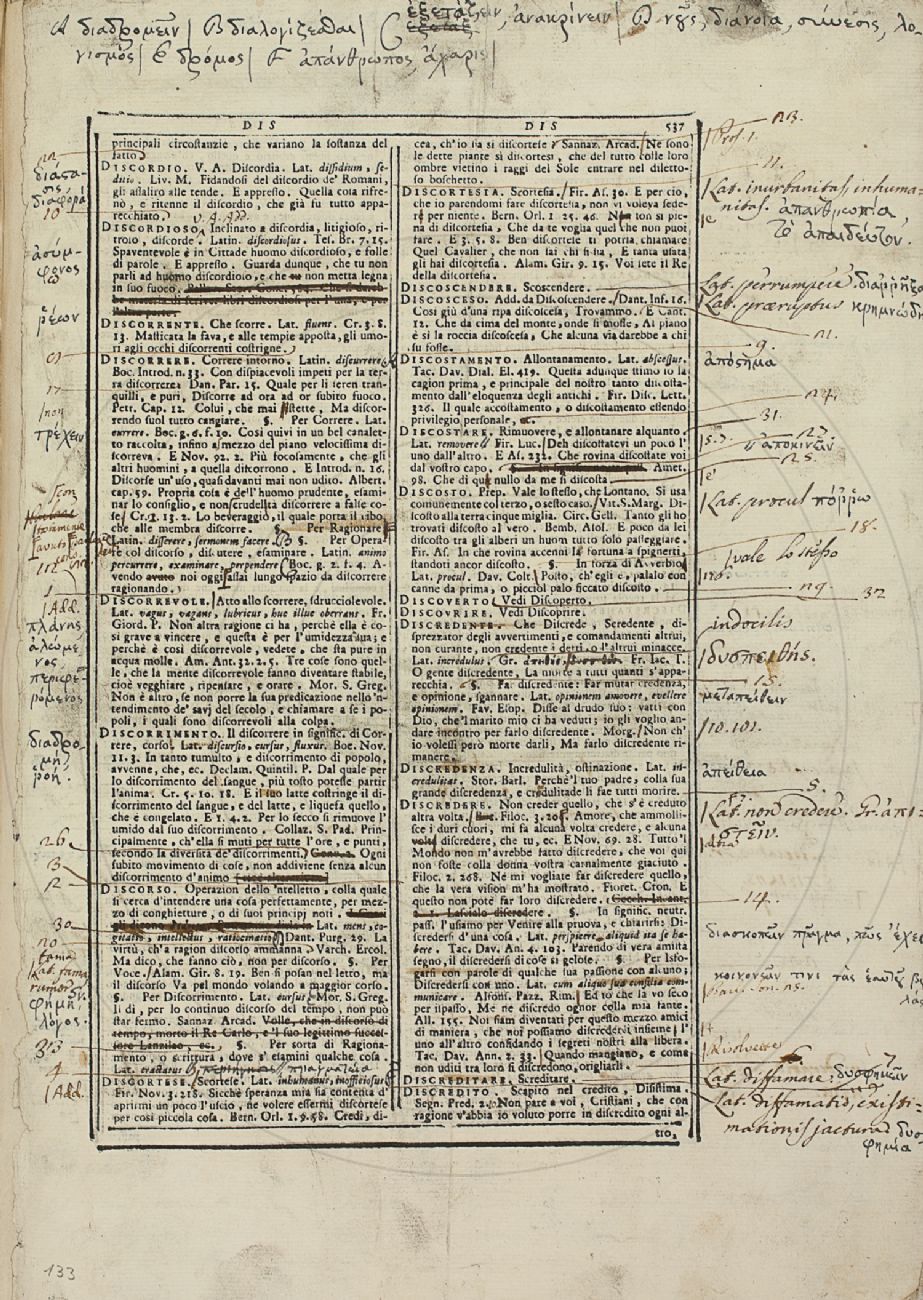 A διαδρομεῖν | B διαλογίζεσθαι | C ἐξετάζειν, ἀνακρίνειν | D νοῦς, διάνοια, σύνεσις, λο-
γισμός | E δρόμος | F ἀπάνθρωπος, ἄχαρις |
DIS
DIS 537
principali circostanzie, che variano la sostanza del
fatto.
DISCORDIO. V. A. Discordia. Lat. dissidium, se-
ditio. Liv. M. Fidandosi del discordio de' Romani,
gli assaliro alle tende. E appresso. Quella cosa rifre-
nò, e ritenne il discordio, che già fu tutto appa-
recchiato.
DISCORDIOSO. Inclinato a discordia, litigioso, ri-
troso, discorde. Latin. discordiosus. Tes. Br. 7. 15.
Spaventevole è in Cittade huomo discordioso, e folle
di parole. E appresso. Guarda dunque, che tu non
parli ad huomo discordioso, e che tu non metta legna
in suo fuoco.
DISCORRENTE. Che scorre. Lat. fluens. Cr. 3. 8.
13. Masticata la fava, e alle tempie apposta, gli umo-
ri agli occhi discorrenti costrigne.
DISCORRERE. Correre intorno. Latin. discurrere.
Boc. Introd. n. 33. Con dispiacevoli impeti per la ter-
ra discorrere. Dan. Par. 15. Quale per li seren tran-
quilli, e puri, Discorre ad ora ad or subito fuoco.
Petr. Cap. 12. Colui, che mai ristette, Ma discor-
rendo suol tutto cangiare. §. Per Correre. Lat.
currere. Boc. g. 6. f. 10. Così quivi in un bel canalet-
to raccolta, infino al mezzo del piano velocissima di-
scorreva. E Nov. 92. 2. Più focosamente, che gli
altri huomini, a quella discorrono. E Introd. n. 16.
Discorse un'uso, quasi davanti mai non udito. Albert.
cap. 59. Propria cosa è dell'huomo prudente, esami-
nar lo consiglio, e non crudelità discorrere a false co-
se. Cr. 9. 13. 2. Lo beveraggio, il quale porta il cibo,
che alle membra discorre. §. Per Ragionare.
Latin. disserere, sermonem facere. §. Per Opera-
re col discorso, discutere, esaminare. Latin. animo
percurrere, examinare, perpendere. Boc. g. 2. f. 4. A-
vendo avuto noi oggi assai lungo spazio da discorrere
ragionando.
DISCORREVOLE. Atto allo scorrere, sdrucciolevole.
Lat. vagus, vagans, lubricus, huc illuc oberrans. Fr.
Giord. P. Non altra ragione ci ha, perchè ella è co-
sì grave a vincere, e questa è per l'umidezza sua; e
perchè è così discorrevole, vedete, che sta pure in
acqua molle. Am. Ant. 32. 2. 5. Tre cose sono quel-
le, che la mente discorrevole fanno diventare stabile,
cioè vegghiare, ripensare, e orare. Mor. S. Greg.
Non è altro, se non porre la sua predicazione nello 'n-
tendimento de' savj del secolo, e chiamare a se i po-
poli, i quali sono discorrevoli alla colpa.
DISCORRIMENTO. Il discorrere in signific. di Cor-
rere, corso. Lat. discursio, cursus, fluxus. Boc. Nov.
11. 3. In tanto tumulto, e discorrimento di popolo,
avvenne, che, ec. Declam. Quintil. P. Dal quale per
lo discorrimento del sangue, più tosto potesse partir
l'anima. Cr. 5. 10. 18. E il suo latte costringe il di-
scorrimento del sangue, e del latte, e liquefa quello,
che è congelato. E 1. 4. 2. Per lo secco si rimuove l'
umido dal suo discorrimento. Collaz. S. Pad. Prin-
cipalmente, ch'ella si muti per tutte l'ore, e punti,
secondo la diversità de' discorrimenti. Ogni
subito mutamento di cose, non addiviene senza alcun
discorrimento d'animo
DISCORSO. Operazion dello 'ntelletto, colla quale
si cerca d'intendere una cosa perfettamente, per mez-
zo di conghietture, o di suoi principj noti.
Lat. mens, co-
gitatio, intellectus, ratiocinatio. Dant. Purg. 29. La
virtù, ch'a ragion discorso ammanna. Varch. Ercol.
Ma dico, che fanno ciò, non per discorso. §. Per
Voce. Alam. Gir. 8. 19. Ben si posan nel letto, ma
il discorso Va pel mondo volando a maggior corso.
§. Per Discorrimento. Lat. cursus. Mor. S. Greg.
Il dì, per lo continuo discorso del tempo, non può
star fermo. Sannaz. Arcad. Volle, che in discorso di
tempo, morto il Re Carlo, e 'l suo legittimo succes-
sore Lanzilao, ec. §. Per sorta di Ragiona-
mento, o scrittura, dove s'esamini qualche cosa.
Lat. tractatus
DISCORTESE. Scortese. Lat. inhumanus, inofficiosus.
Fir. Nov. 3. 218. Sicchè speranza mia sia contenta d'
aprirmi un poco l'uscio, ne volere essermi discortese
per così piccola cosa. Bern. Orl. 1. 9. 58. Credi, di-
cea, ch'io sia sì discortese? Sannaz. Arcad. Ne sono
le dette piante sì discortesi, che del tutto colle loro
ombre vietino i raggi del Sole entrare nel diletto-
so boschetto.
DISCORTESIA. Scortesia. Fir. As. 30. E per ciò,
che io parendomi fare discortesia, non vi voleva sede-
re per niente. Bern. Orl. 1. 25. 46. Non ton si pie-
na di discortesia, Che da te voglia quel che non puoi
fare. E 3. 5. 8. Ben discortese ti potria chiamare
Quel Cavalier, che non sai chi si sia, E tanta usata
gli hai discortesia. Alam. Gir. 9. 15. Voi sete il Re
della discortesia.
DISCOSCENDERE. Scoscendere.
DISCOSCESO. Add. da Discoscendere. Dant. Inf. 16.
Così giù d'una ripa discoscesa, Trovammo. E Cant.
12. Che da cima del monte, onde si mosse, Al piano
è sì la roccia discoscesa, Che alcuna via darebbe a chi
su fosse.
DISCOSTAMENTO. Allontanamento. Lat. abscessus.
Tac. Dav. Dial. El. 419. Questa adunque stimo io la
cagion prima, e principale del nostro tanto discosta-
mento dall'eloquenza degli antichi. Fir. Disc. Lett.
326. Il quale accostamento, o discostamento essendo
privilegio personale, ec.
DISCOSTARE. Rimuovere, e allontanare alquanto.
Lat. removere. Fir. Luc. Deh discostatevi un poco l'
uno dall'altro. E As. 232. Che rovina discostate voi
dal vostro capo. Amet.
98. Che di qui nullo da me si discosta
DISCOSTO. Prep. Vale lo stesso, che Lontano. Si usa
comunemente col terzo, o sesto caso. Vit. S. Marg. Di-
scosto alla terra cinque miglia. Circ. Gell. Tanto gli ho
trovati discosto al vero. Bemb. Asol. E poco da lei
discosto tra gli alberi un huom tutto solo passeggiare.
Fir. As. In che rovina accenni la fortuna a spignerti,
standoti ancor discosto. §. In forza di Avverbio
Lat. procul. Dav. Colt. Posto, ch'egli è, palalo con
canne da prima, o piccioi palo ficcato discosto.
DISCOVERTO. Vedi Discoperto.
DISCOVRIRE. Vedi Discoprire.
DISCREDENTE. Che Discrede, Scredente, di-
sprezzator degli avvertimenti, e comandamenti altrui,
non curante, non credente i detti, o l'altrui minacce.
Lat. incredulus. Gr. Fr. Iac. T.
O gente discredente, La morte a tutti quanti s'appa-
recchia. §. Far discredente: Far mutar credenza,
e opinione, sgannare. Lat. opinionem amovere, evellere
opinionem. Fav. Esop. Disse al drudo suo: vatti con
Dio, che'l marito mio ci ha veduti; io gli voglio an-
dare incontro per farlo discredente. Morg. Non ch'
io volessi però morte darli, Ma farlo discredente ri-
manere.
DISCREDENZA. Incredulità, ostinazione. Lat. in-
credulitas. Stor. Barl. Perchè'l tuo padre, colla sua
grande discredenza, e credulitade li fae tutti morire.
DISCREDERE. Non creder quello, che s'è creduto
altra volta. Filoc. 3. 20. Amore, che ammolli-
sce i duri cuori, mi fa alcuna volta credere, e alcuna
volta discredere, che tu, ec. E Nov. 69. 28. Tutto'l
Mondo non m'avrebbe fatto discredere, che voi qui
non foste colla donna vostra carnalmente giaciuto.
Filoc. 2. 268. Nè mi vogliate far discredere quello,
che la vera vision m'ha mostrato. Fioret. Cron. E
questo non potè far loro discredere.
§. In signific. neutr.
pass. l'usiamo per Venire alla pruova, e chiarirsi: Di-
scredersi d'una cosa. Lat. perspicere, aliquid ita se ha-
bere. Tac. Dav. An. 4. 103. Parendo di vera amista
segno, il discredersi di cose sì gelote. §. Per Isfo-
garsi con parole di qualche sua passione con alcuno;
Discredersi con uno. Lat. cum aliquo sua consilia com-
municare. Alfons. Pazz. Rim. Ed io che la vo seco
per ispasso, Me ne discredo ognor colla mia fante.
All. 155. Noi siam diventati per questo mezzo amici
di maniera, che noi possiamo discrederci insieme l'
uno all'altro confidando i segreti nostri alla libera.
Tac. Dav. Ann. 2. 33. Quando mangiano, e come
non uditi tra loro si discredono, origliarli.
DISCREDITARE. Screditare.
DISCREDITO. Scapito nel credito, Disistima.
Segn. Pred. 2. Non pare a voi, Cristiani, che con
ragione v'abbia io voluto porre in discredito ogni al-
tro,
23.
11.
Lat. inurbanitas, inhuma-
nitas. ἀπανθρωπία,
τὸ ἀπαίδευτον.
Lat. perrumpere. διαρρῆξαι
Lat. praeruptus κρημνώδης
21.
9.
24.
31.
25.
Lat. procul πόρρω
18.
vale lo stesso
29.
32
indocilis
δυσπειθής.
15.
μεταπείθειν
10. 101.
ἀπείθεια
5.
Lat. non credere. Gr. ἀπι-
στεῖν.
14.
διασκοπεῖν πρᾶγμα, πῶς ἔχει
Risolvere
Lat. diffamare. δυσφημεῖν
Lat. diffamatio, existi-
mationis jactura δυσ-
φημία
διάστα-
σις
διαφορά
10
ἀσύμ-
φονος
ῥέων
τρέχειν
Add.
πλάνης
διαδρο-
μή,
ῥοή.
26
3
12
30
20
φήμη,
λόγος.
33
4
Add.
133